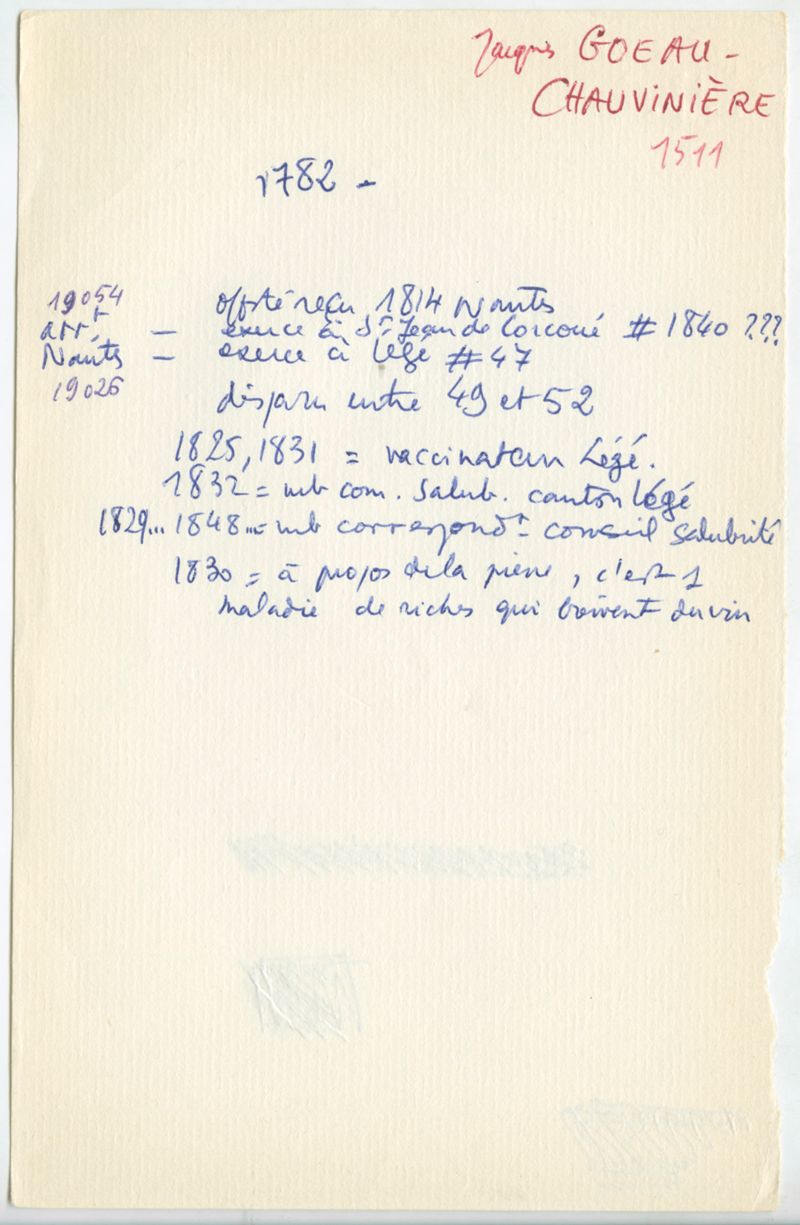 Jacques GOEAU-
CHAUVINIÈRE
1511
1782 -
19054
arrt
Nantes
19026
off. sté reçu 1814 Nantes
— exerce à St Jean de Corcoué # 1840 ???
— exerce à Légé # 47
disparu entre 49 et 52
1825, 1831 = vaccinateur Légé.
1832 = mb com. salub. canton Légé
1829... 1848... = mb correspondt conseil salubrité
1830 = à propos de la pierre, c'est 1
maladie de riches qui boivent du vin